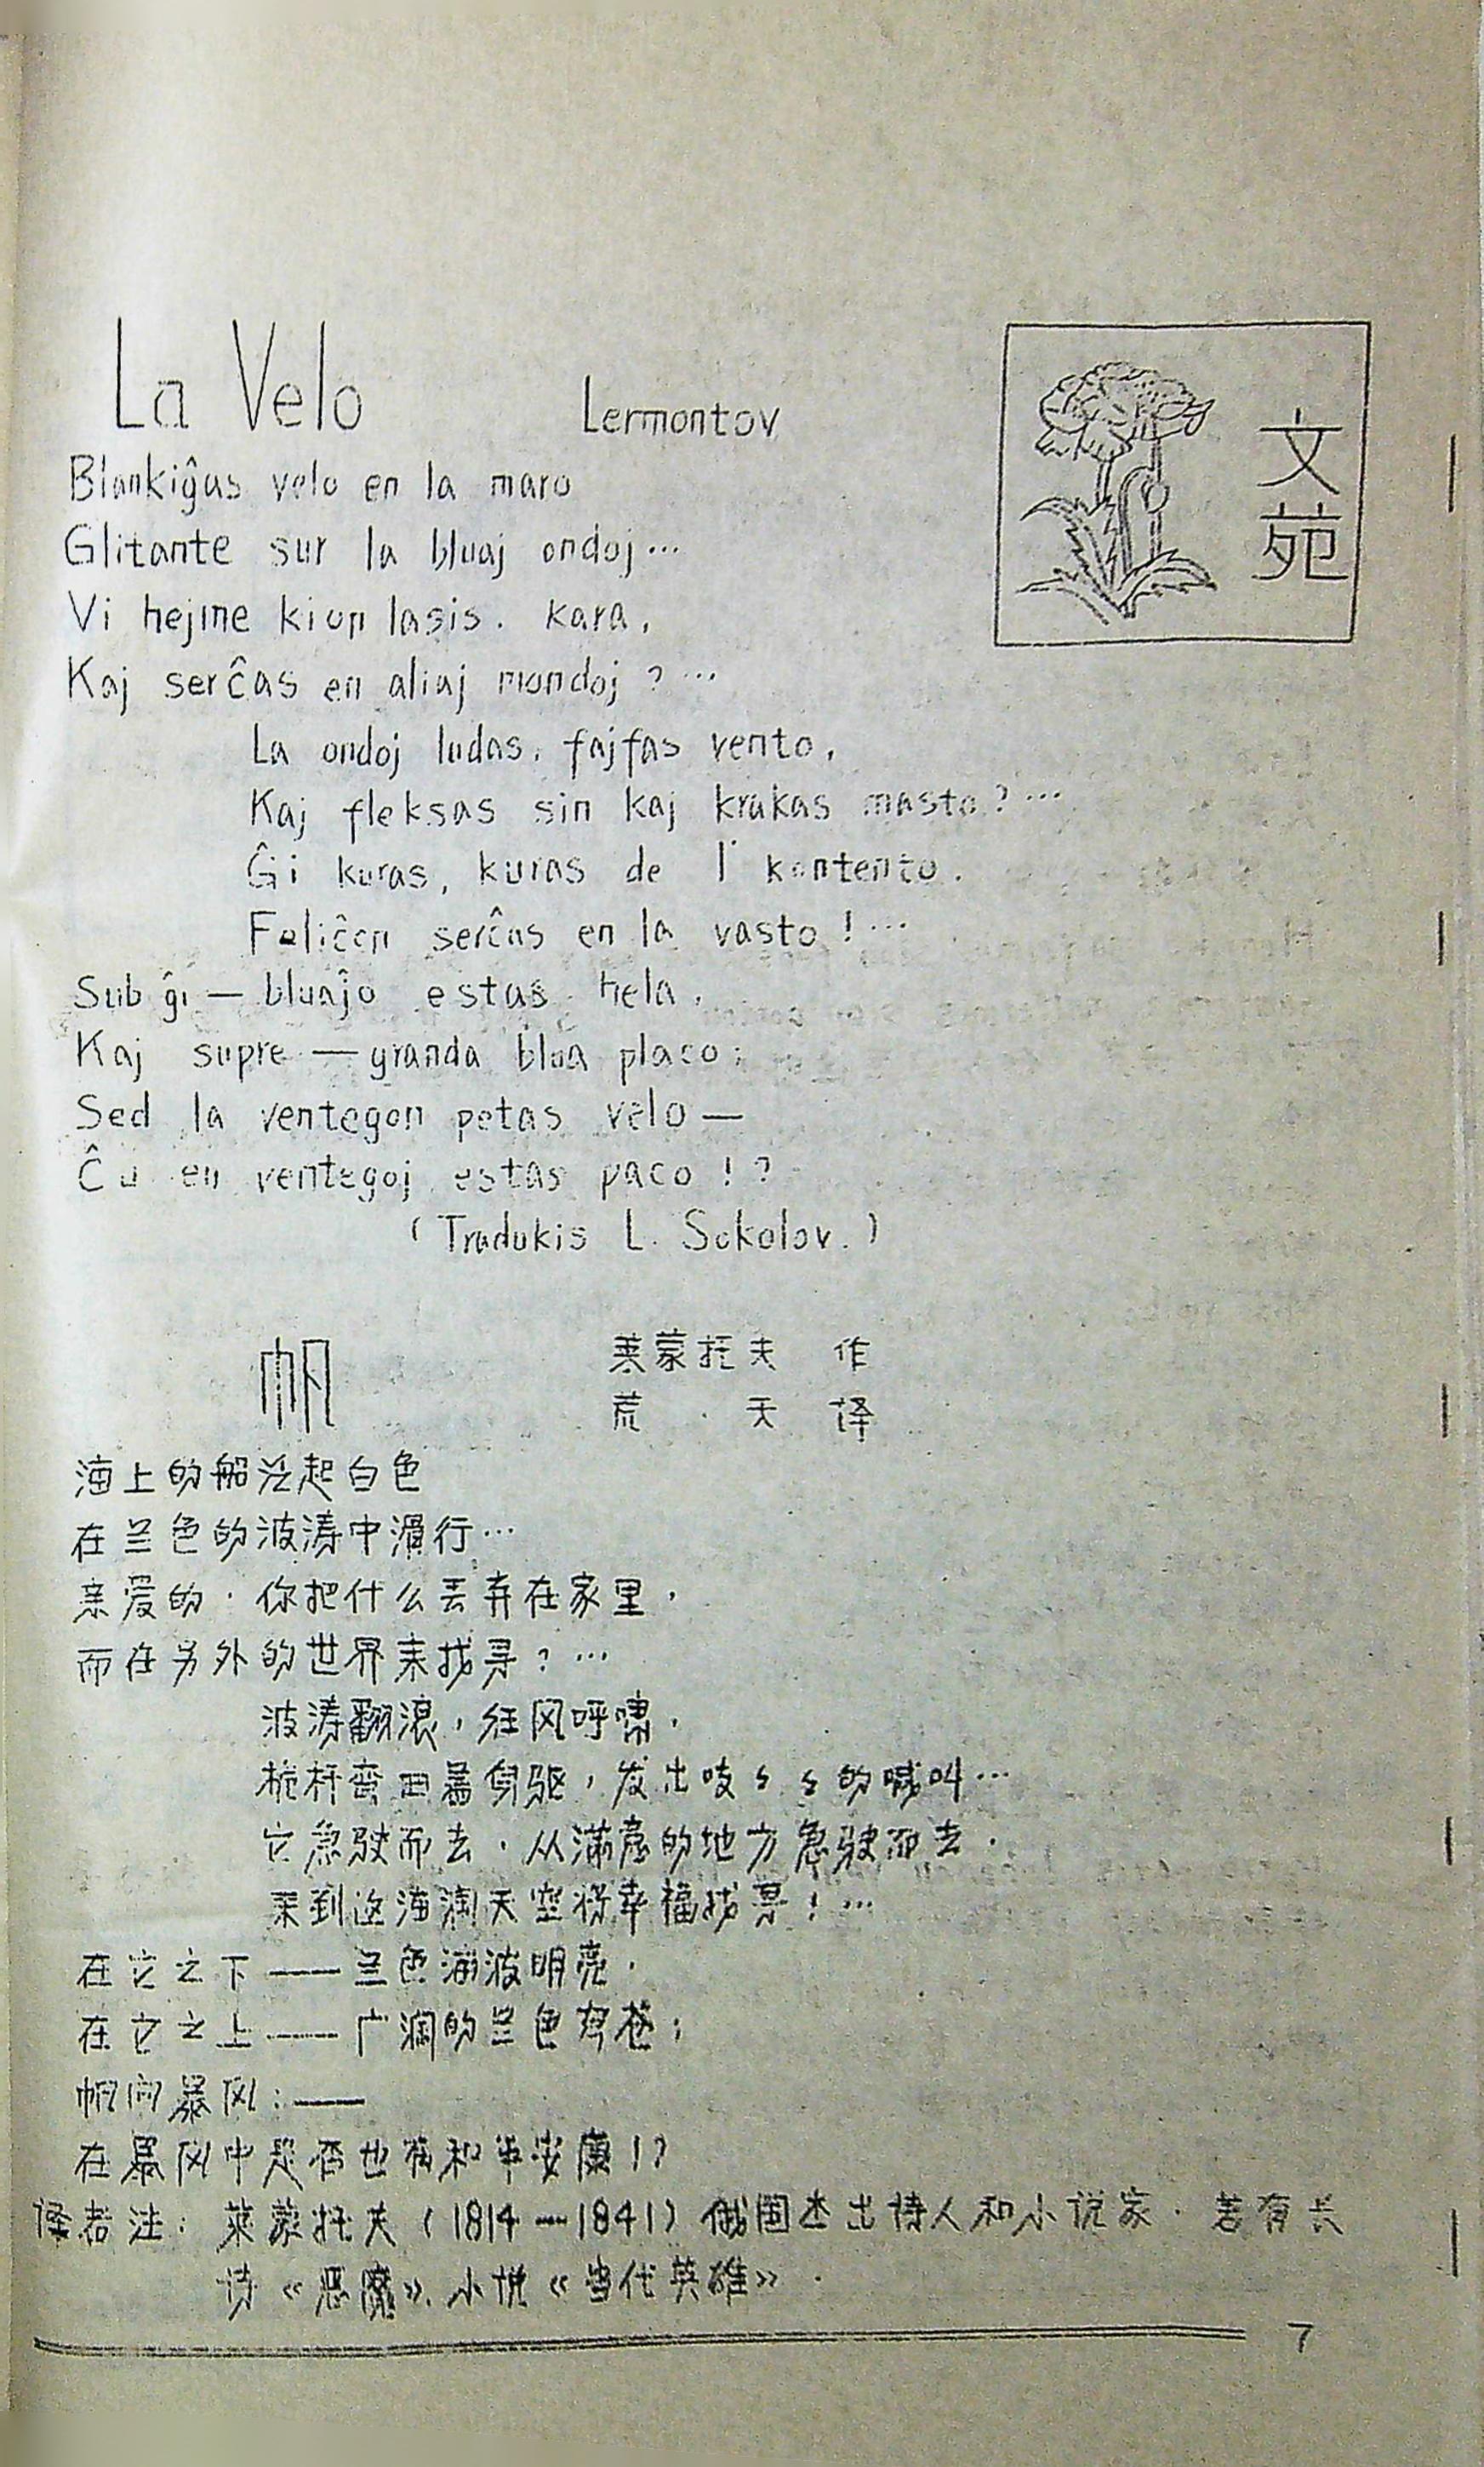 La Velo
Lermontov
文苑
Blankiĝas velo en la maro
Glitante sur la bluaj ondoj…
Vi hejme kion lasis. kara,
Kaj serĉas en aliaj mondoj ? …
La ondoj ludas, fajfas vento,
Kaj fleksas sin kaj krakas masto ? …
Ĝi kuras, kuras de l' kontento.
Feliĉon serĉas en la vasto ! …
Sub ĝi — bluaĵo estas hela,
Kaj supre — granda blua placo;
Sed la ventegon petas velo —
Ĉu en ventegoj estas paco ! ?
( Tradukis L. Sokolov. )
帆
莱蒙托夫 作
荒 天 译
海上的船泛起白色
在兰色的波涛中滑行…
亲爱的，你把什么丢弃在家里，
而在另外的世界来找寻？…
波涛翻滚，狂风呼啸，
桅杆弯曲着身躯，发出吱々々的喊叫…
它急驶而去，从满意的地方急驶而去，
来到这海阔天空将幸福找寻！…
在它之下——兰色海波明亮，
在它之上——广阔的兰色穹苍；
帆问暴风：——
在暴风中是否也有和平安康！？
译者注：莱蒙托夫（1814—1841）俄国杰出诗人和小说家．著有长
诗《恶魔》、小说《当代英雄》．
7